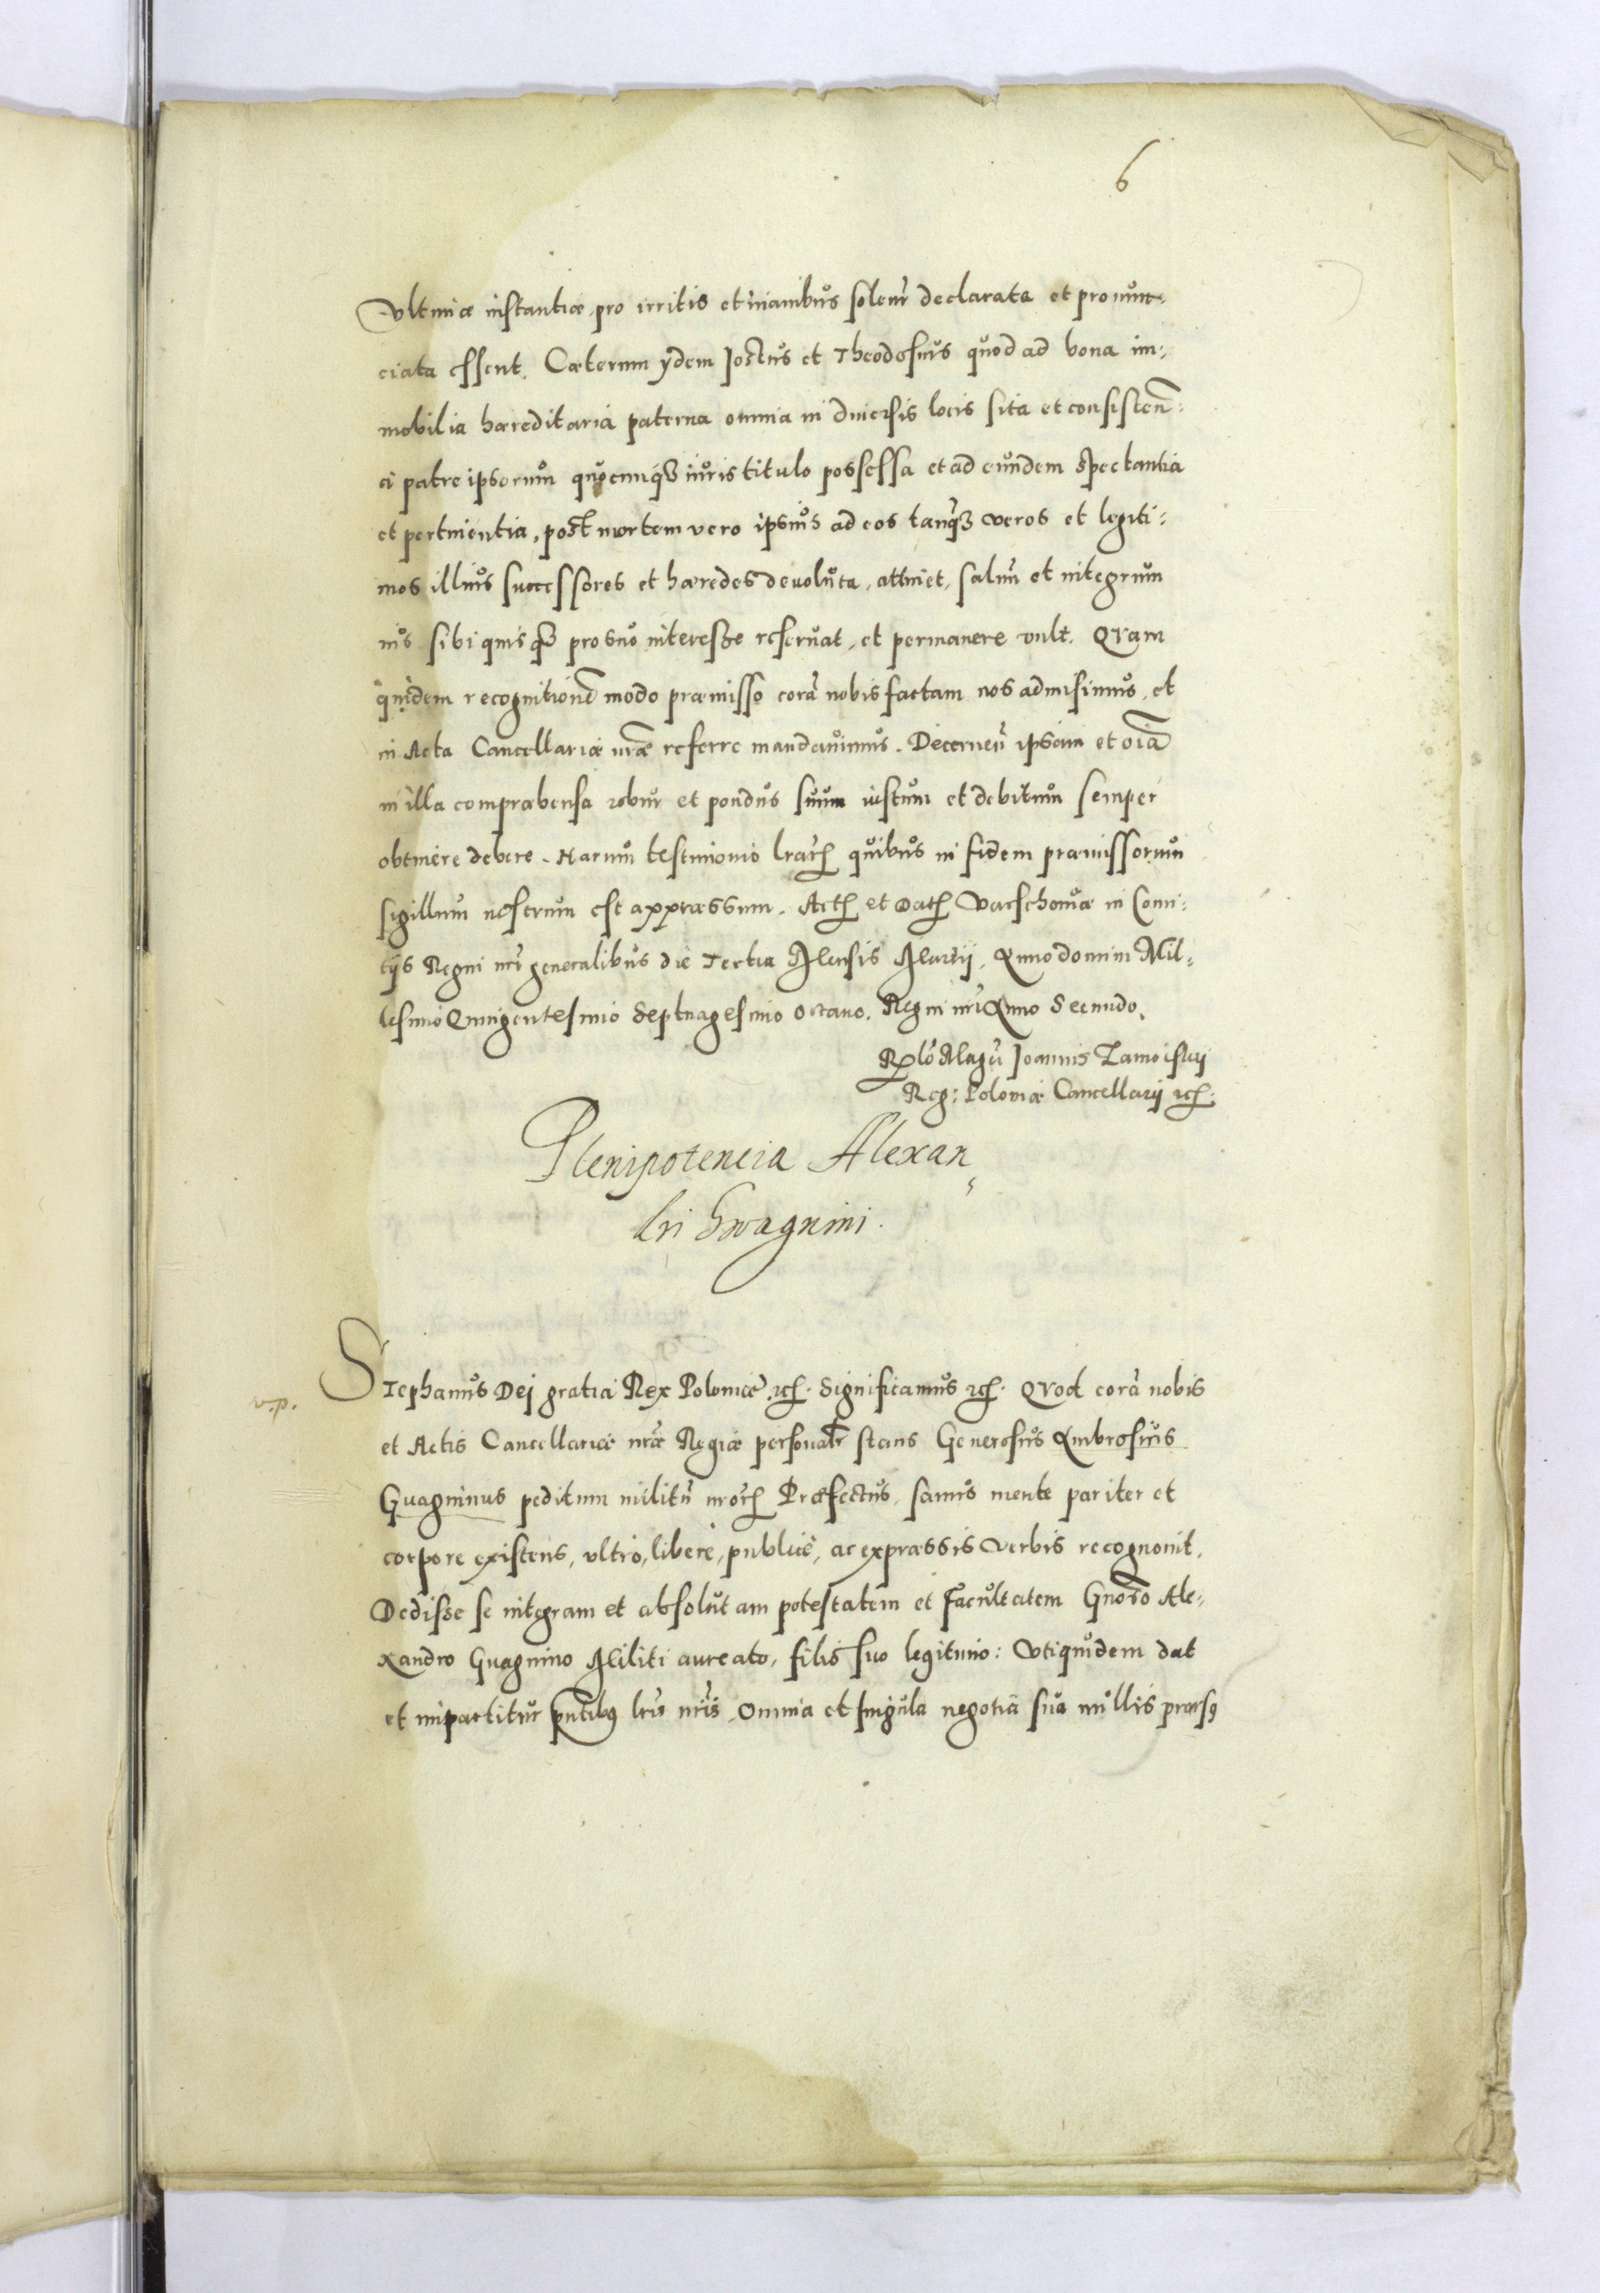 6
Vltimæ instantiæ, pro irritis et inanibus solenr declarata et pronun-
ciata essent. Cæterum ydem Jostus et Theodosius quod ad bona im:
mobilia hæreditaria paterna omnia in diuersis locis sita et consisten:
à patre ipsorum quocunq iuris titulo possessa et ad eundem spectantia
et pertinentia, post mortem vero ipsius ad eos tanq veros et legiti:
mos illius successores et hæredes deuoluta, attinet, saluu et integrum
ius sibi quisq pro suo interesse reseruat, et permanere vult. Qvam
quidem recognitione modo præmisso corã nobis factam nos admisimus, et
in Acta Cancellariæ nræ referre mandauimus. Decernen ipsam et oia
in illa compræhensa robur et pondus suum iustum et debitum semper
obtinere debere. Harum testimonio lrar quibus in fidem præmissorum
sigillum nostrum est appræssum. Act et Dat Varschouiæ in Comi:
tijs Regni nri generalibus die Tertia Mensis Martij. Anno domini Mil-
lesimo Quingentesimo Septuagesimo Octauo. Regni nri Anno Secundo.
Rlo Magci Joannis Zamoiscij
Reg: Poloniæ Cancellarij etc.
Plenipotencia Alexan
dri Gwagnini.
v.p.
Stephanus Dej gratia Rex Poloniæ etc. Significamus etc. Qvod corã nobis
et Actis Cancellariæ nræ Regiæ personalr stans Generosus Ambrosius
Guagninus peditum militu nror Præfectus, sanus mente pariter et
corpore existens, vltro, liberè, publicè, ac expræssis verbis recognouit.
Dedisse se integram et absolutam potestatem et facultatem Gnoso Ale-
xandro Guagnino Militi aureato, filio suo legitimo: Vtiquidem dat
et impartitur pntibus lris nris, Omnia et singula negotia sua nullis prorsus